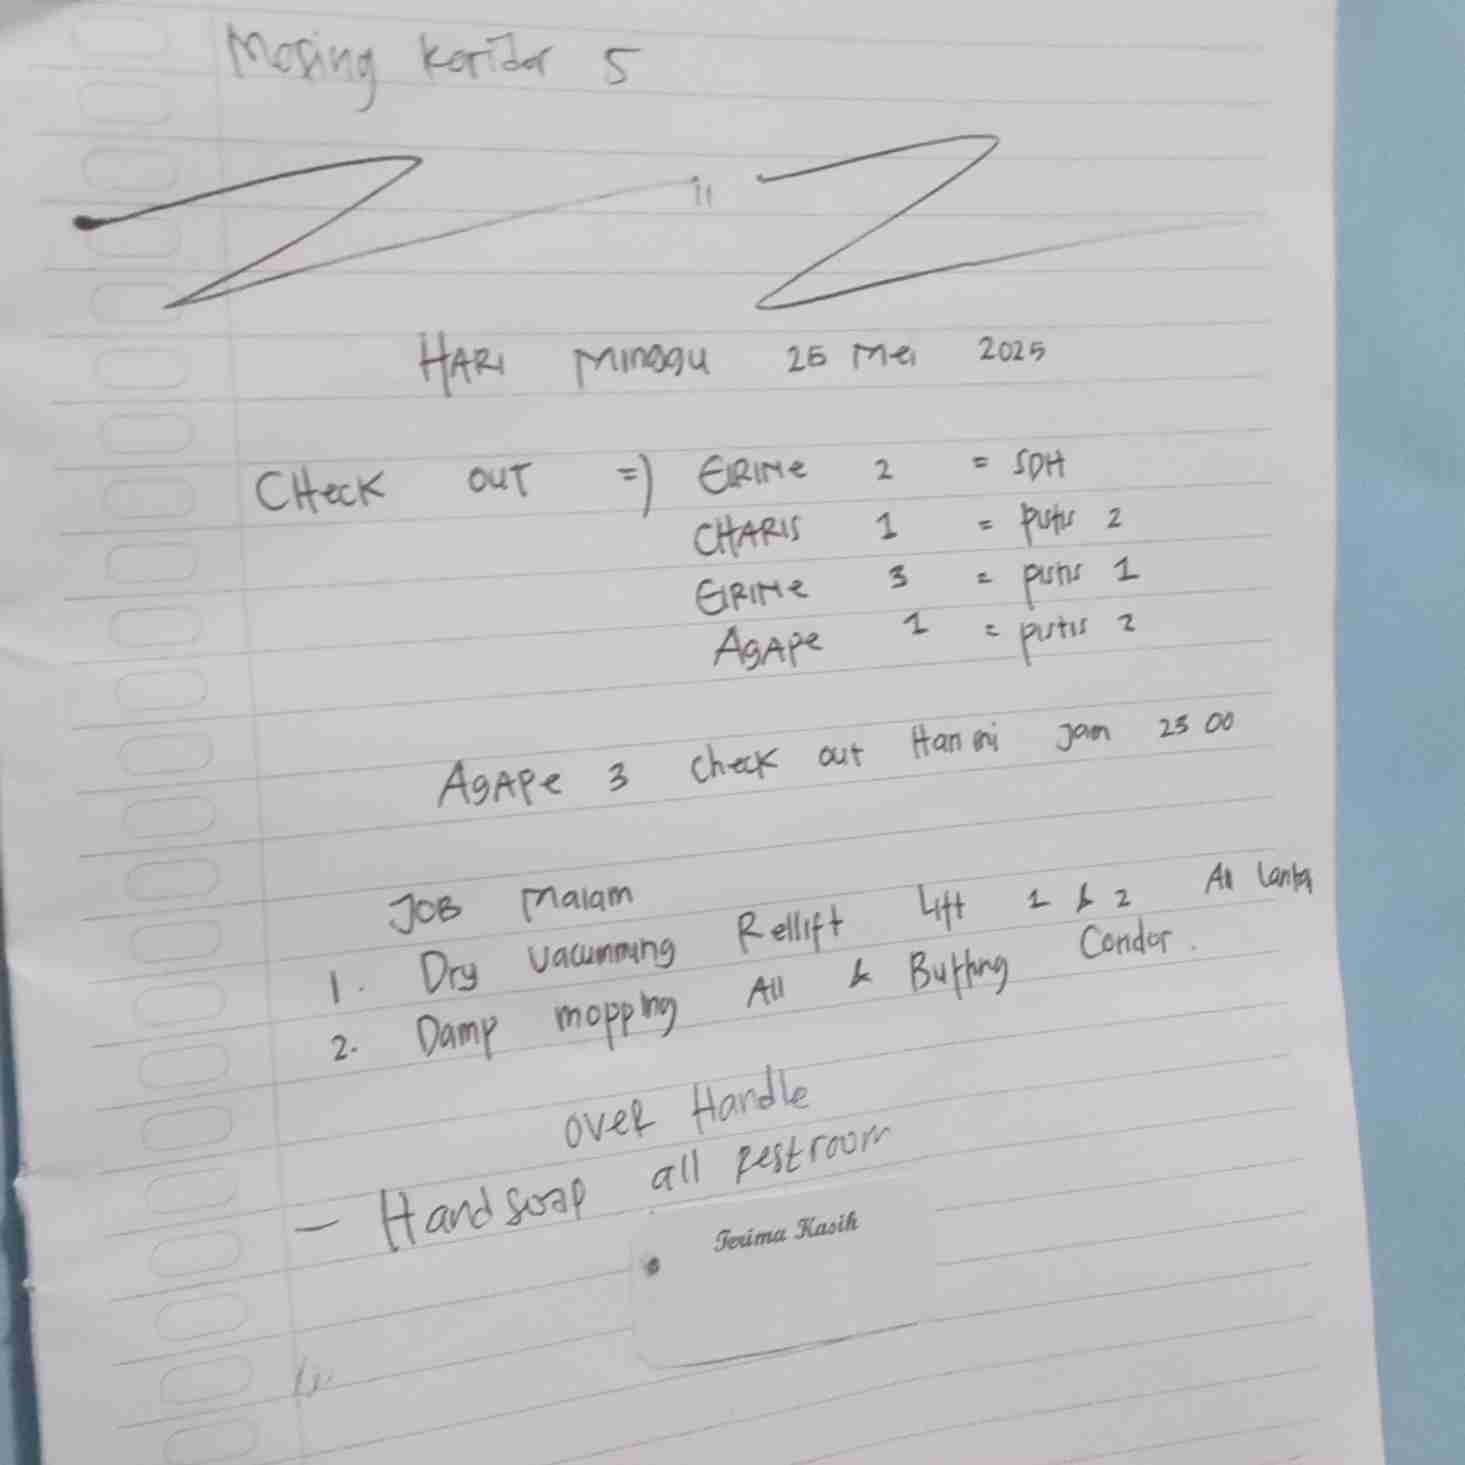 Mosing Koridor 5
HARI Minggu 25 Mei 2025
CHeCK OUT => EIRINe 2 = SDH
CHARIS 1 = pistis 2
EIRINe 3 = pistis 1
AgAPe 1 = pistis 2
AgAPe 3 Check out Hari ini Jam 23 00
JOB Malam
1. Dry Vacumming Rellift Lift 1 & 2 All Lantai
2. Damp mopping All & Buffing Coridor.
over Handle
- Handsoap all restroom
Terima Kasih